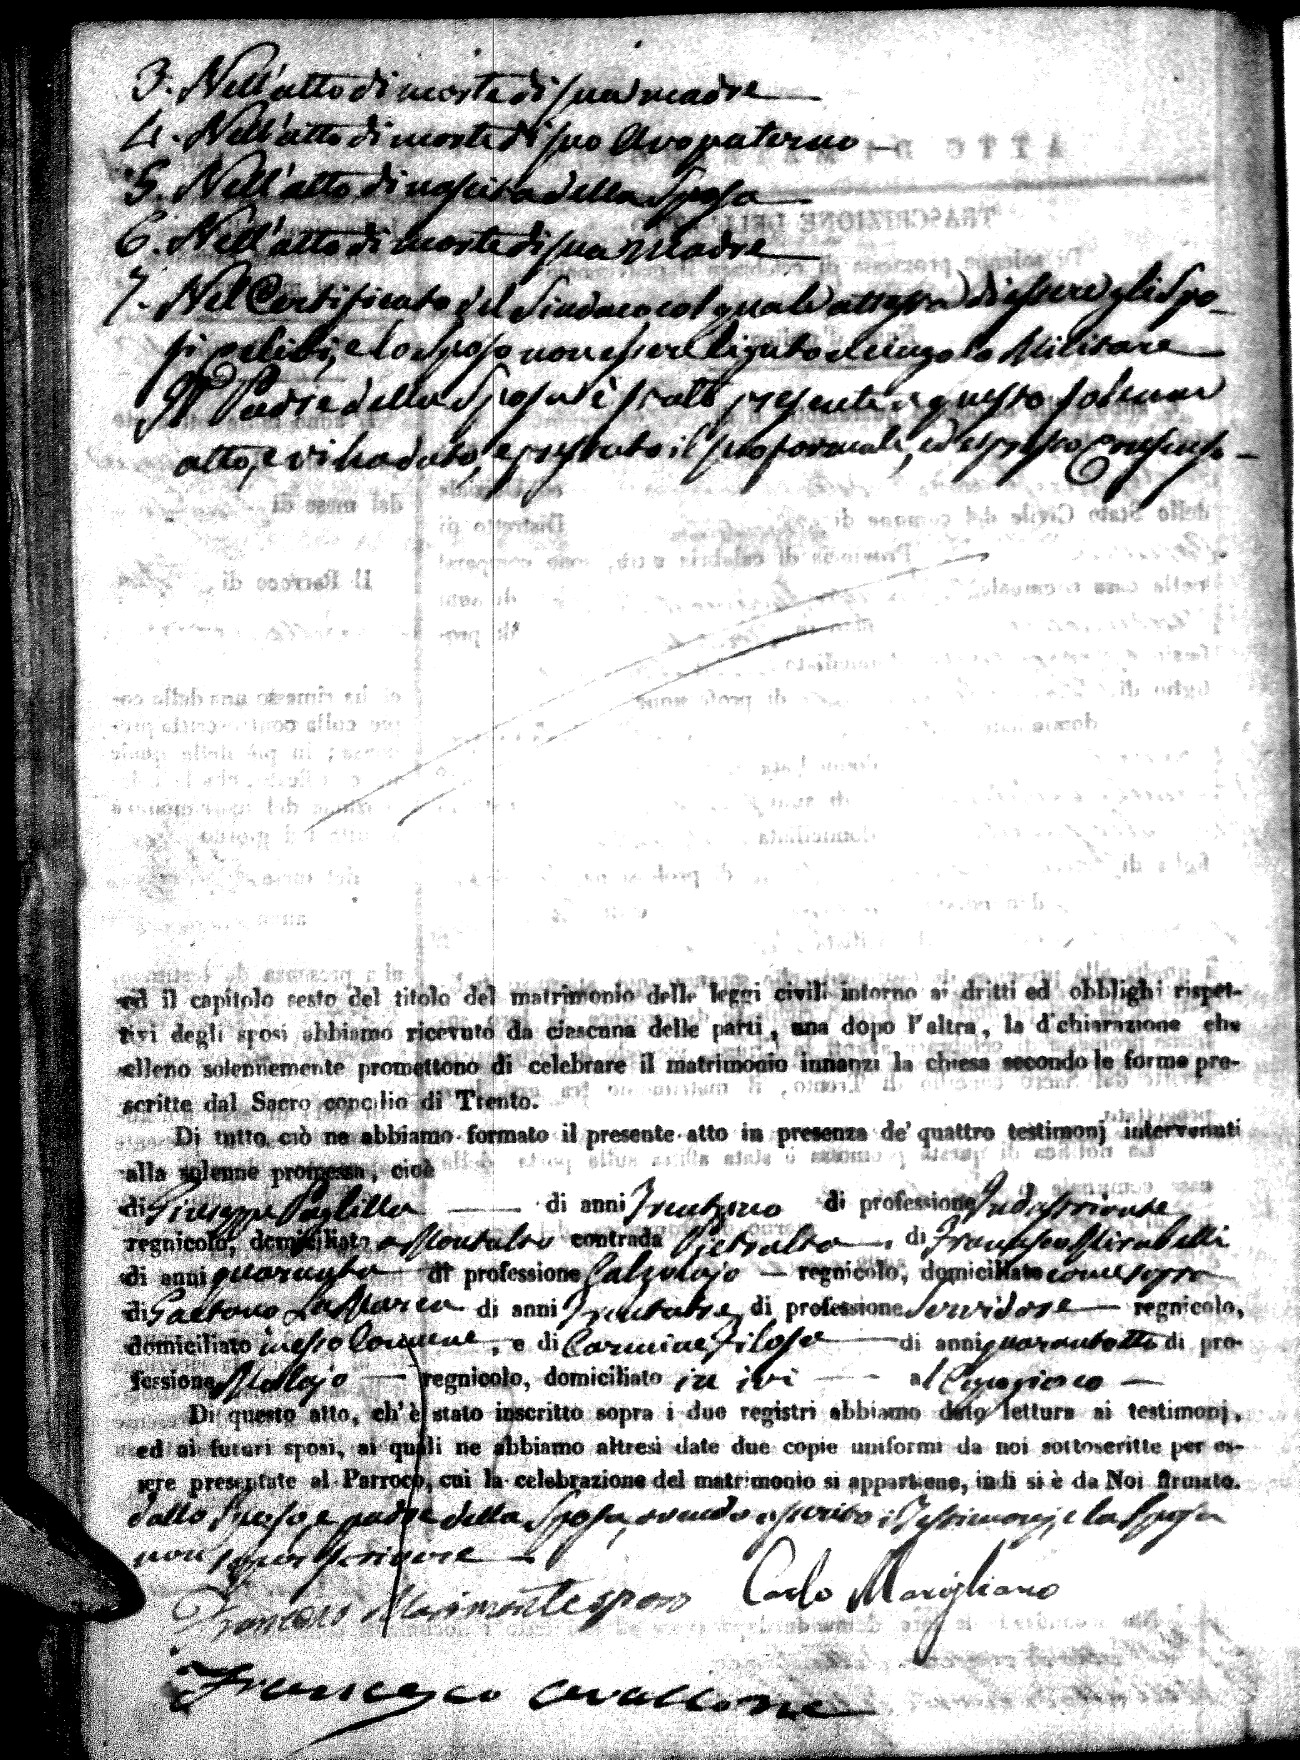 3. Nell'atto di morte di sua madre
4. Nell'atto di morte di suo Avo paterno
5. Nell'atto di nascita della Sposa
6. Nell'atto di morte di sua Madre
7. Nel Certificato del Sindaco col quale attesta di essere gli Spo-
si celibi, e lo sposo non esser ligato al cingolo Militare
Il Padre della Sposa è stato presente a questo solenne
atto, e vi ha dato, e prestato il suo formale, ed espresso Consenso
ed il capitolo sesto del titolo del matrimonio delle leggi civili intorno ai dritti ed obblighi rispet-
tivi degli sposi abbiamo ricevuto da ciascuna delle parti, una dopo l'altra, la dichiarazione che
elleno solennemente promettono di celebrare il matrimonio innanzi la chiesa secondo le forme pre-
scritte dal Sacro concilio di Trento.
Di tutto ciò ne abbiamo formato il presente atto in presenza de' quattro testimonj intervenuti
alla solenne promessa, cioè
di Giuseppe Puglilla di anni Trentuno di professione Industriante
regnicolo, domiciliato a Montalto contrada Pietralta, di Francesco Mirabelli
di anni quaranta di professione Calzolajo regnicolo, domiciliato come sopra
di Gaetano La Marca di anni Trentatre di professione Servidore regnicolo,
domiciliato in esso Comune, e di Carmine Filosa di anni quarantotto di pro-
fessione regnicolo, domiciliato in ivi al
Di questo atto, ch'è stato inscritto sopra i due registri abbiamo dato lettura ai testimonj,
ed ai futuri sposi, ai quali ne abbiamo altresì date due copie uniformi da noi sottoscritte per es-
sere presentate al Parroco, cui la celebrazione del matrimonio si appartiene, indi si è da Noi firmato.
dallo Sposo, e padre della Sposa, avendo asserito i Testimonj, e la Sposa
non saper scrivere
Francesco Marimonte sposo Carlo Marigliano
Francesco Cavallone